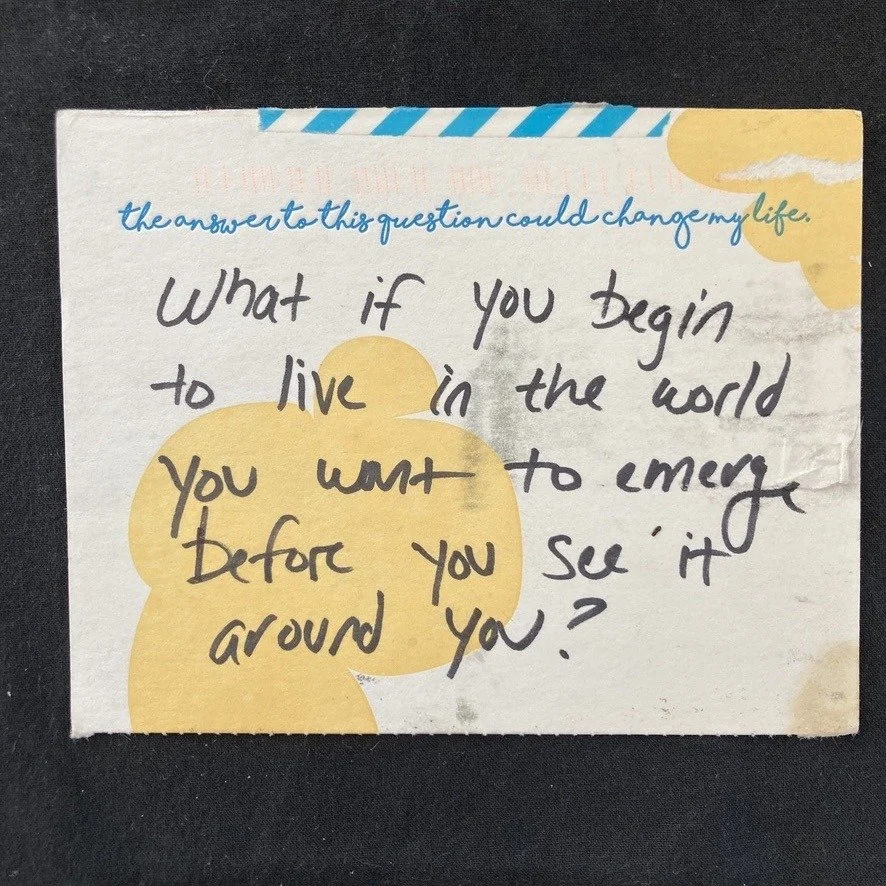 the answer to this question could change my life.
What if you begin
to live in the world
you want to emerge
before you see it
around you?